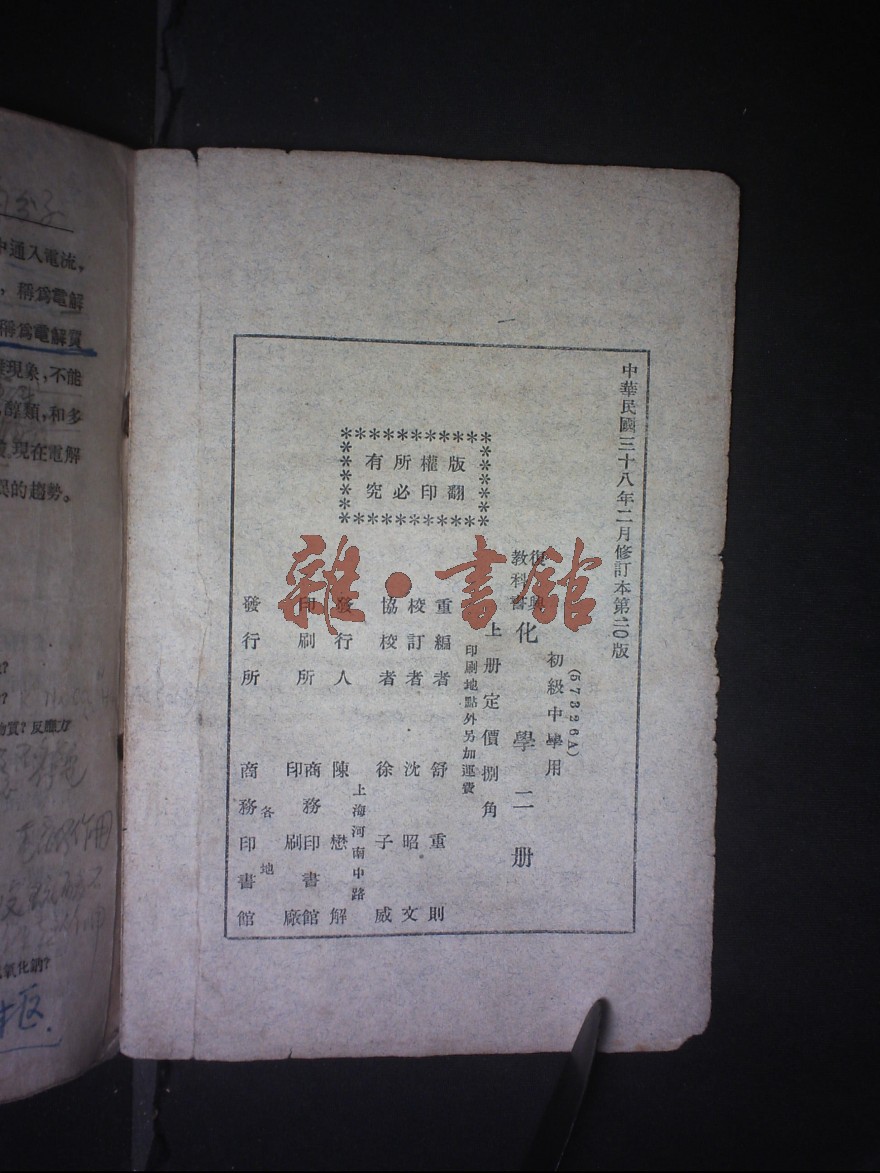 中華民國三十八年二月修訂本第二〇版
(57326A)
初級中學用
復興
教科書
化學二册
上册定價捌角
印刷地點外另加運費
版權所有
翻印必究
重編者 舒重則
校訂者 沈昭文
協校者 徐子威
上海河南中路
發行人 陳懋解
印刷所 商務印書館
印刷廠
各地
發行所 商務印書館
雜·書館
中通入電流,
,稱爲電解
稱爲電解質
現象,不能
類,和多
現在電解
異的趨勢。
物質?反應方
氧化鈉?